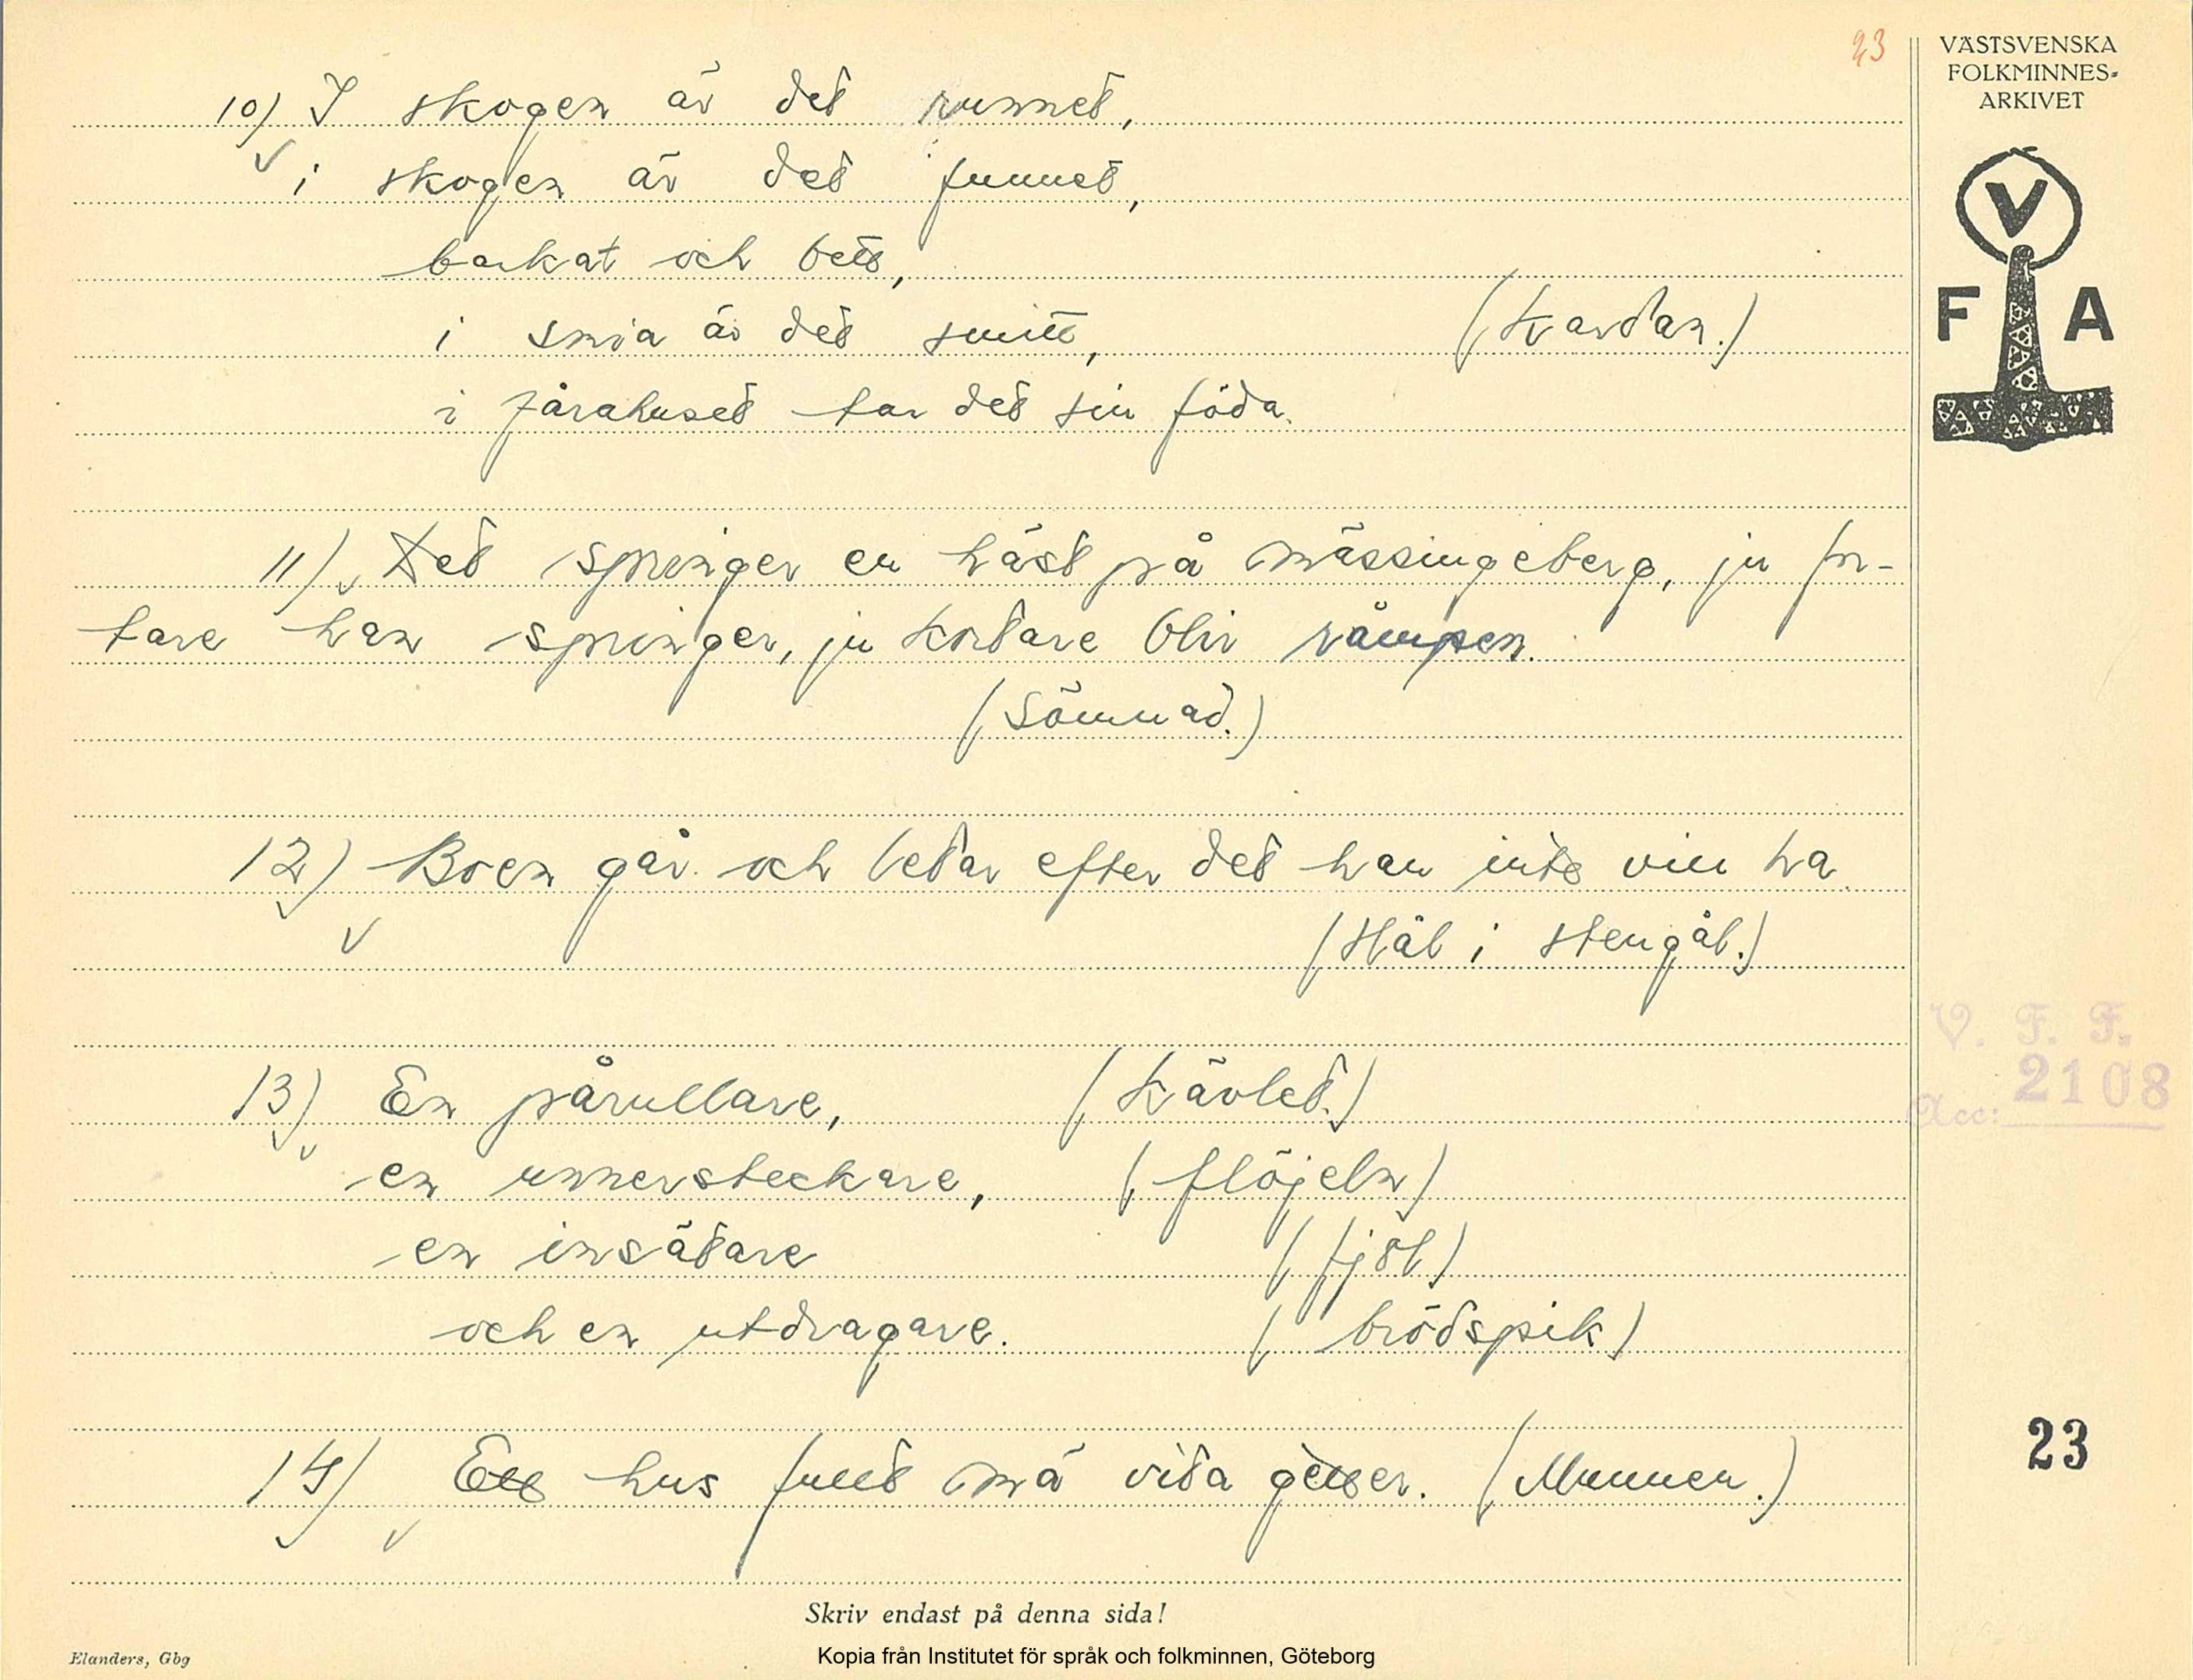 23
VÄSTSVENSKA
FOLKMINNES-
ARKIVET
V
F A
10) I skogen är det runnet,
i skogen är det funnet,
barkat och bett,
i smia är det smitt, (Kardan.)
i fårahuset tar det sin föda.
11) Det springer en häst på mässingeberg, ju for-
tare han springer, ju kortare blir råmpen.
(Sömnad.)
12) Boen går och letar efter det han inte vill ha.
(Hål i stengål.)
13) En pårullare, (Kävlet.)
en unnersteckare, (flöjeln)
en insätare (fjöl)
och en utdragare. (brödspik)
14) Ett hus fullt mä vida getter. (Munnen.)
V. F. F.
Acc: 2108
23
Skriv endast på denna sida!
Elanders, Gbg
Kopia från Institutet för språk och folkminnen, Göteborg